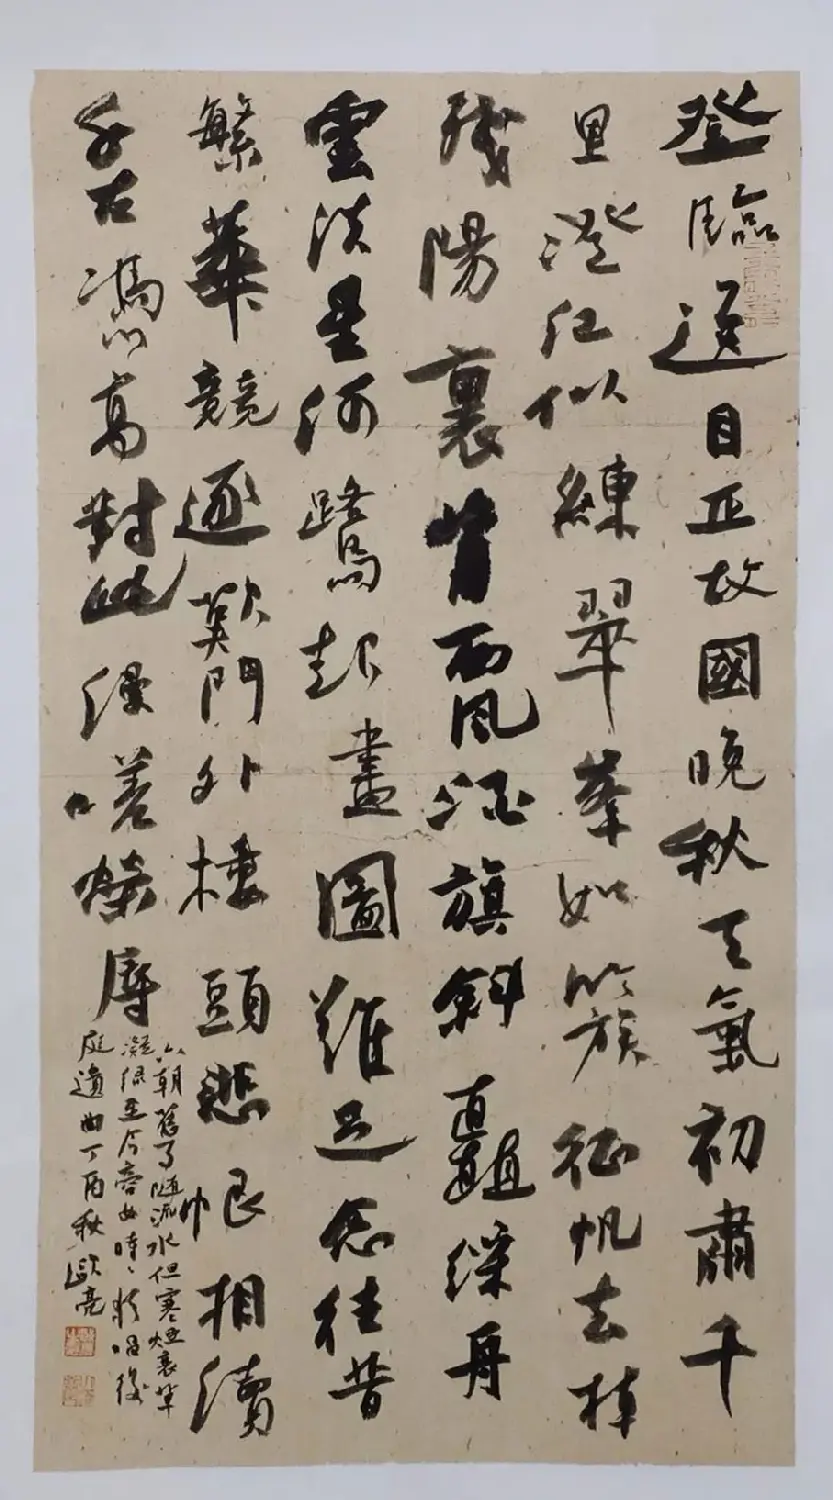 登臨送目正故國晚秋天氣初肅千
里澄江似練翠峯如簇征帆去棹
殘陽裏背西風酒旗斜矗綵舟
雲淡星河鷺起畫圖難足念往昔
繁華競逐歎門外樓頭悲恨相續
千古憑高對此漫嗟榮辱
六朝舊事隨流水但寒煙衰草
凝綠至今商女時時猶唱後
庭遺曲丁酉秋歐亮